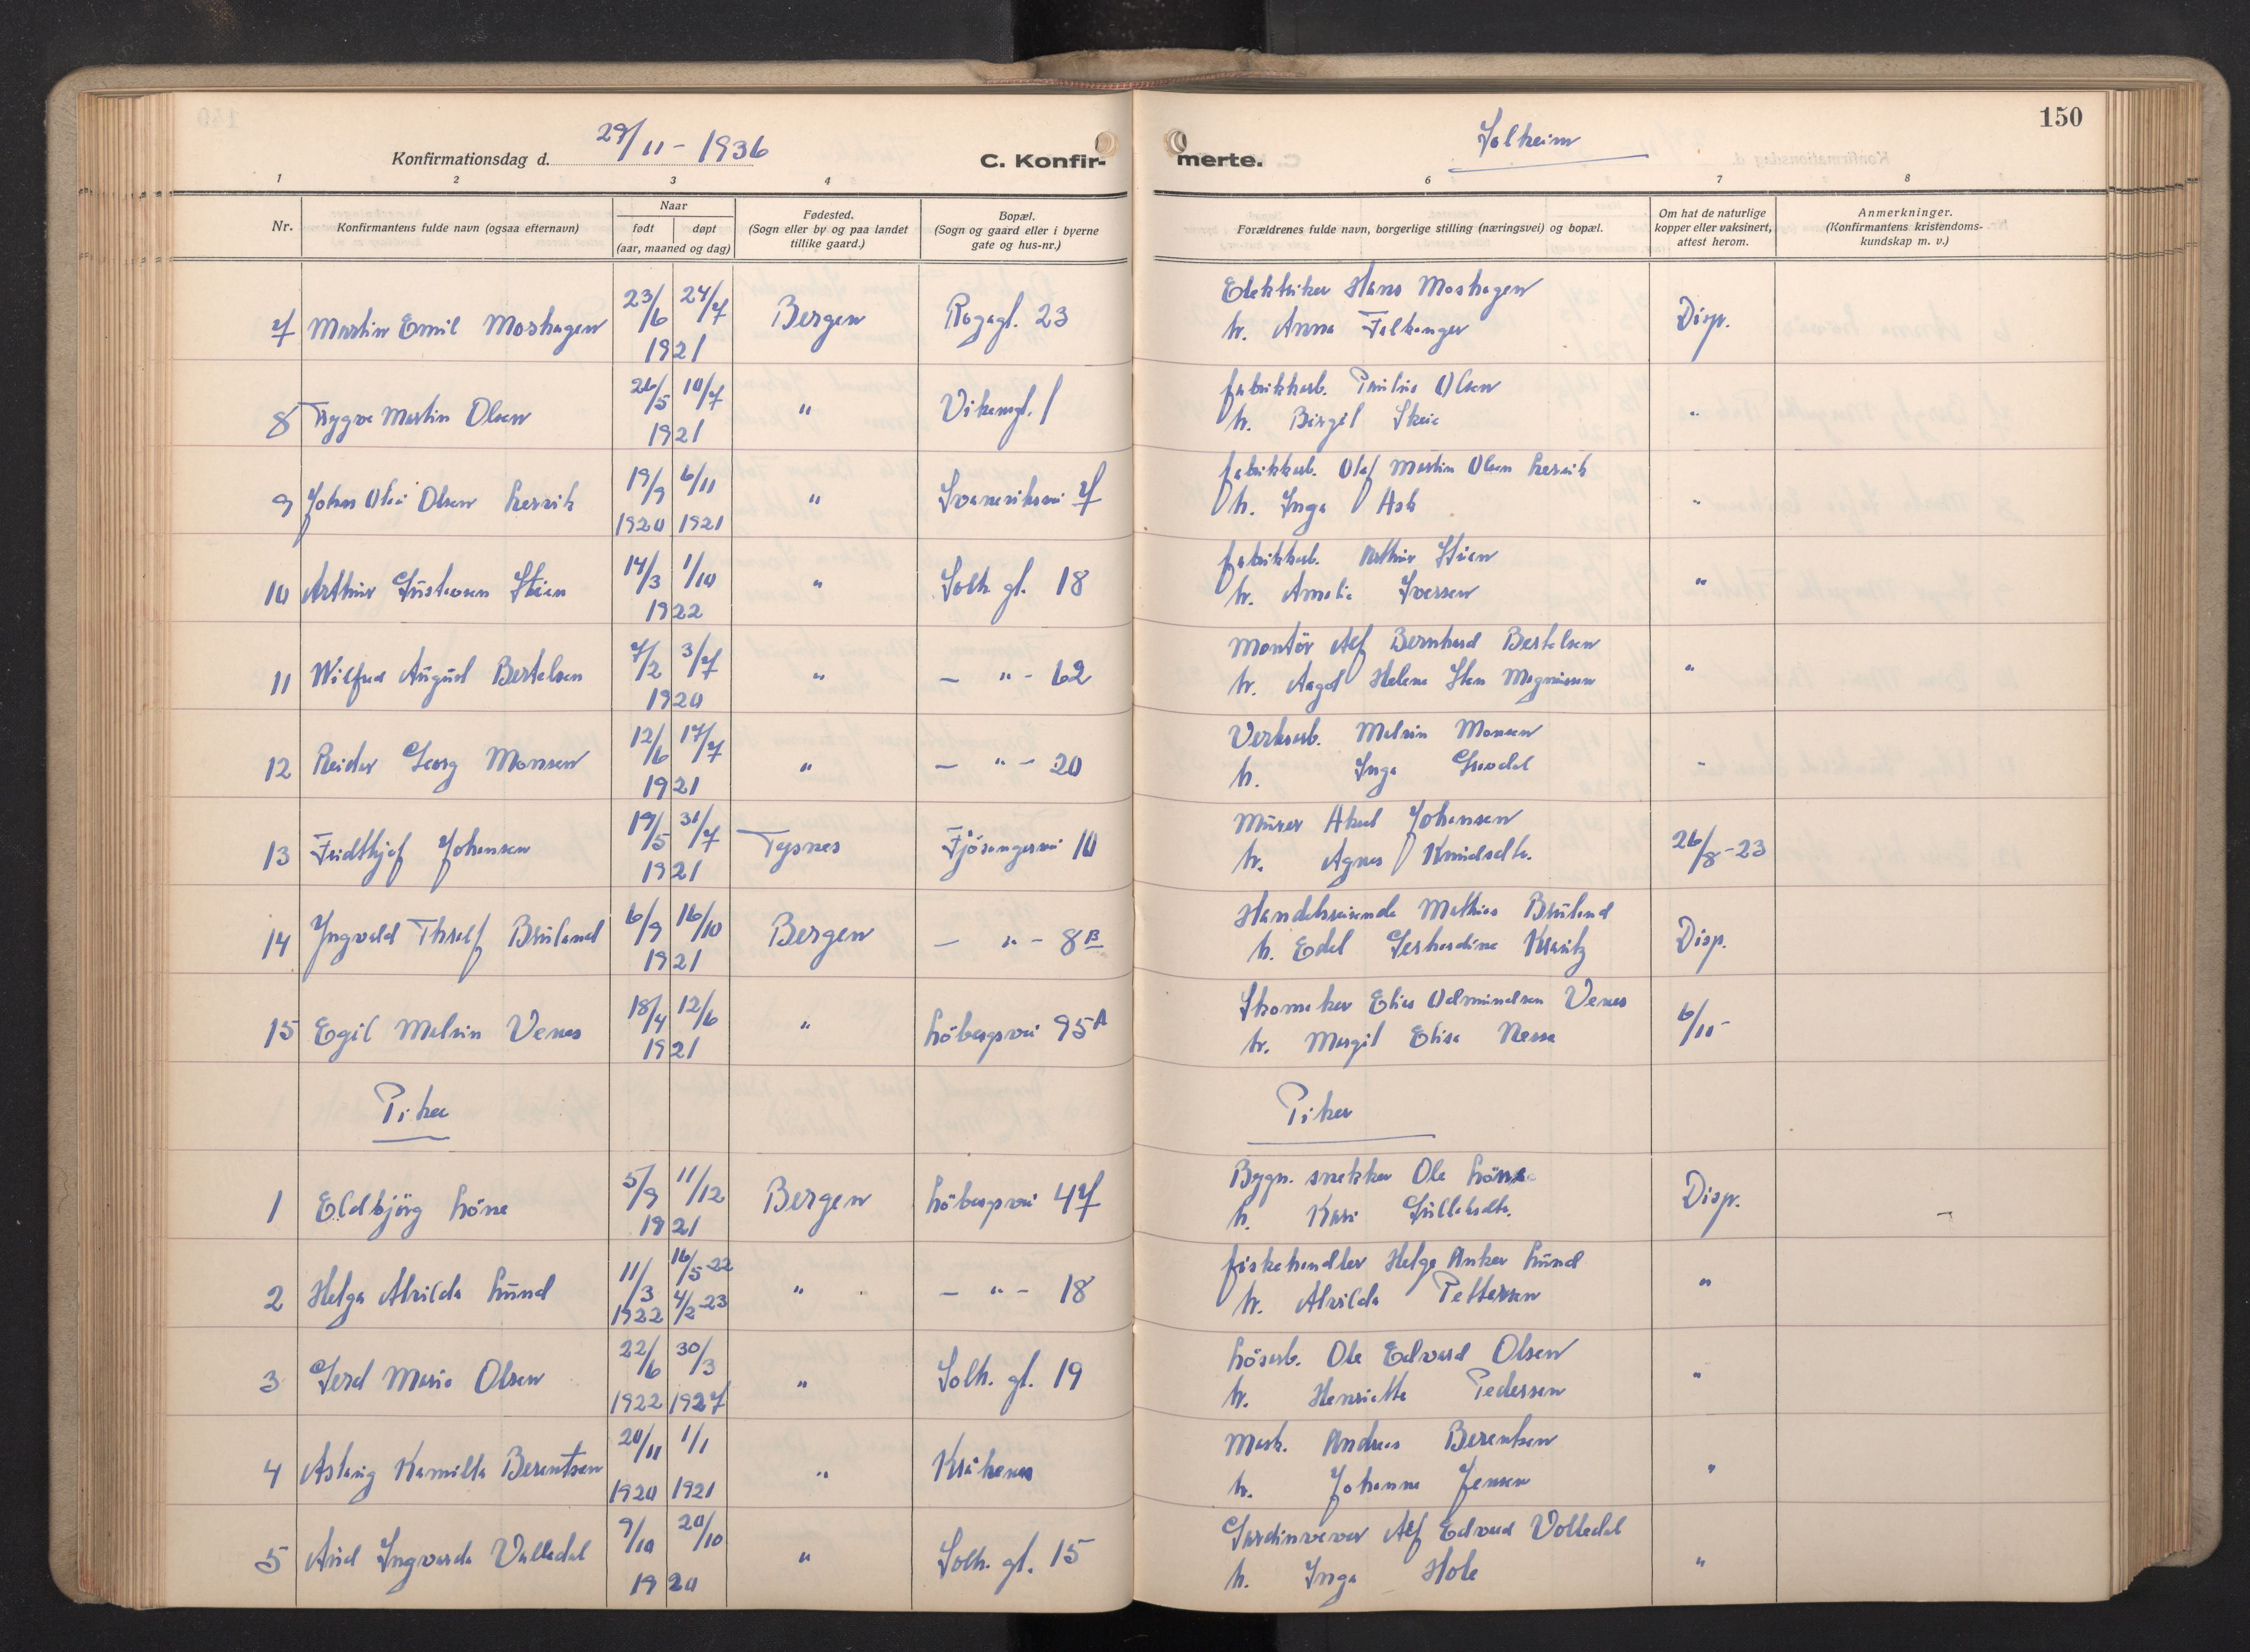 150
Konfirmationsdag d. 29/11 - 1936
C. Konfir-
merte.
Solheim
1 2 3 4 5 6 7 8
Nr.
Konfirmantens fulde navn (ogsaa efternavn)
Naar
født døpt
(aar, maaned og dag)
Fødested.
(Sogn eller by og paa landet
tillike gaard.)
Bopæl.
(Sogn og gaard eller i byerne
gate og hus-nr.)
Forældrenes fulde navn, borgerlige stilling (næringsvei) og bopæl.
Om hat de naturlige
kopper eller vaksinert,
attest herom.
Anmerkninger.
(Konfirmantens kristendoms-
kundskap m. v.)
23/6 24/7 Elektriker Hans Moshagen
7 Martin Emil Moshagen Bergen 23 h. Anna Falkanger Disp.
1921
26/5 10/7 fabrikkarb. Paulus Olsen
8 Trygve Martin Olsen " Vikensgt. 1 h. Birgit Skeie "
1921
19/9 6/11 fabrikkarb. Olaf Martin Olsen Lervik
9 Johan Olai Olsen Lervik " 7 h. Inga Ask "
1920 1921
14/3 1/10 fabrikkarb. Arthur Stien
10 Arthur Gustavsen Stien " Solh. gt. 18 h. Amalie Iversen "
1922
7/2 3/7 Montör Alf Bernhard Bertelsen
11 Wilfred August Bertelsen " — " - 62 h. Aagot Helene Magnussen "
1920
12/6 17/7 Verksarb. Melvin Monsen
12 Reidar Georg Monsen " — " - 20 h. Inga "
1921
19/5 31/7 Murer Aksel Johansen
13 Fridthjof Johansen Tysnes Fjösangervei 10 h. Agnes Knudsdtr. 26/8-23
1921
6/9 16/10 Handelsreisende Mathias Bruland
14 Yngvald Bruland Bergen — " - 8B h. Edel Gerhardine Disp.
1921
18/4 12/6 Skomaker Elias Odmundsen Venes
15 Egil Melvin Venes " Löbergsvei 95A h. Margit Elisa Nesse 6/11-
1921
Piker Piker
5/9 11/12 Bygn. snekker Ole Löne
1 Eldbjörg Löne Bergen Löbergsvei 47 h. Kari Disp.
1921
11/3 16/5-22 fiskehandler Helge Anker Lund
2 Helga Alvilda Lund " — " - 18 h. Alvilda Pettersen "
1922 4/2-23
22/6 30/3 Lösarb. Ole Edvard Olsen
3 Gerd Marie Olsen " Solh. gt. 19 h. Henriette Pedersen "
1922 1927
20/11 1/1 Mask. Andreas Berentsen
4 Aslaug Kamilla Berentsen " Kråkenes h. Johanne Jensen "
1920 1921
9/10 20/10 Gardinvever Alf Edvard Valledal
5 Aud Ingvarda Valledal " Solh. gt. 15 h. Inga Hole "
1920